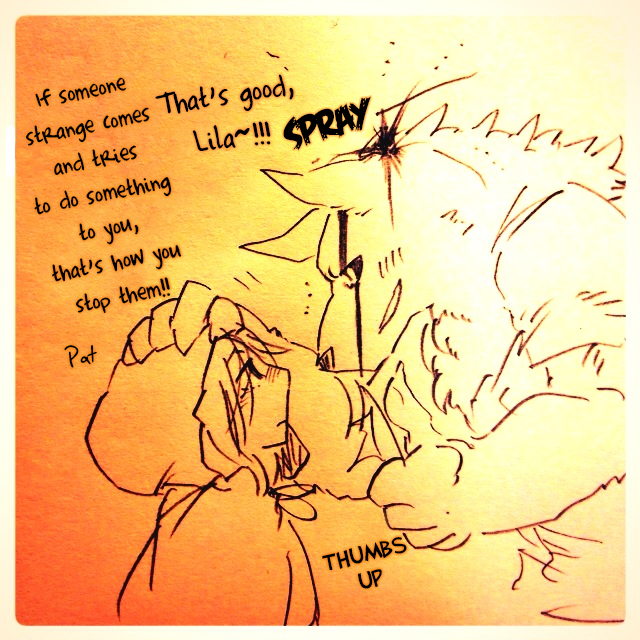 If someone
strange comes
and tries
to do something
to you,
that's how you
stop them!!
That's good,
Lila~!!!
SPRAY
Pat
THUMBS
UP